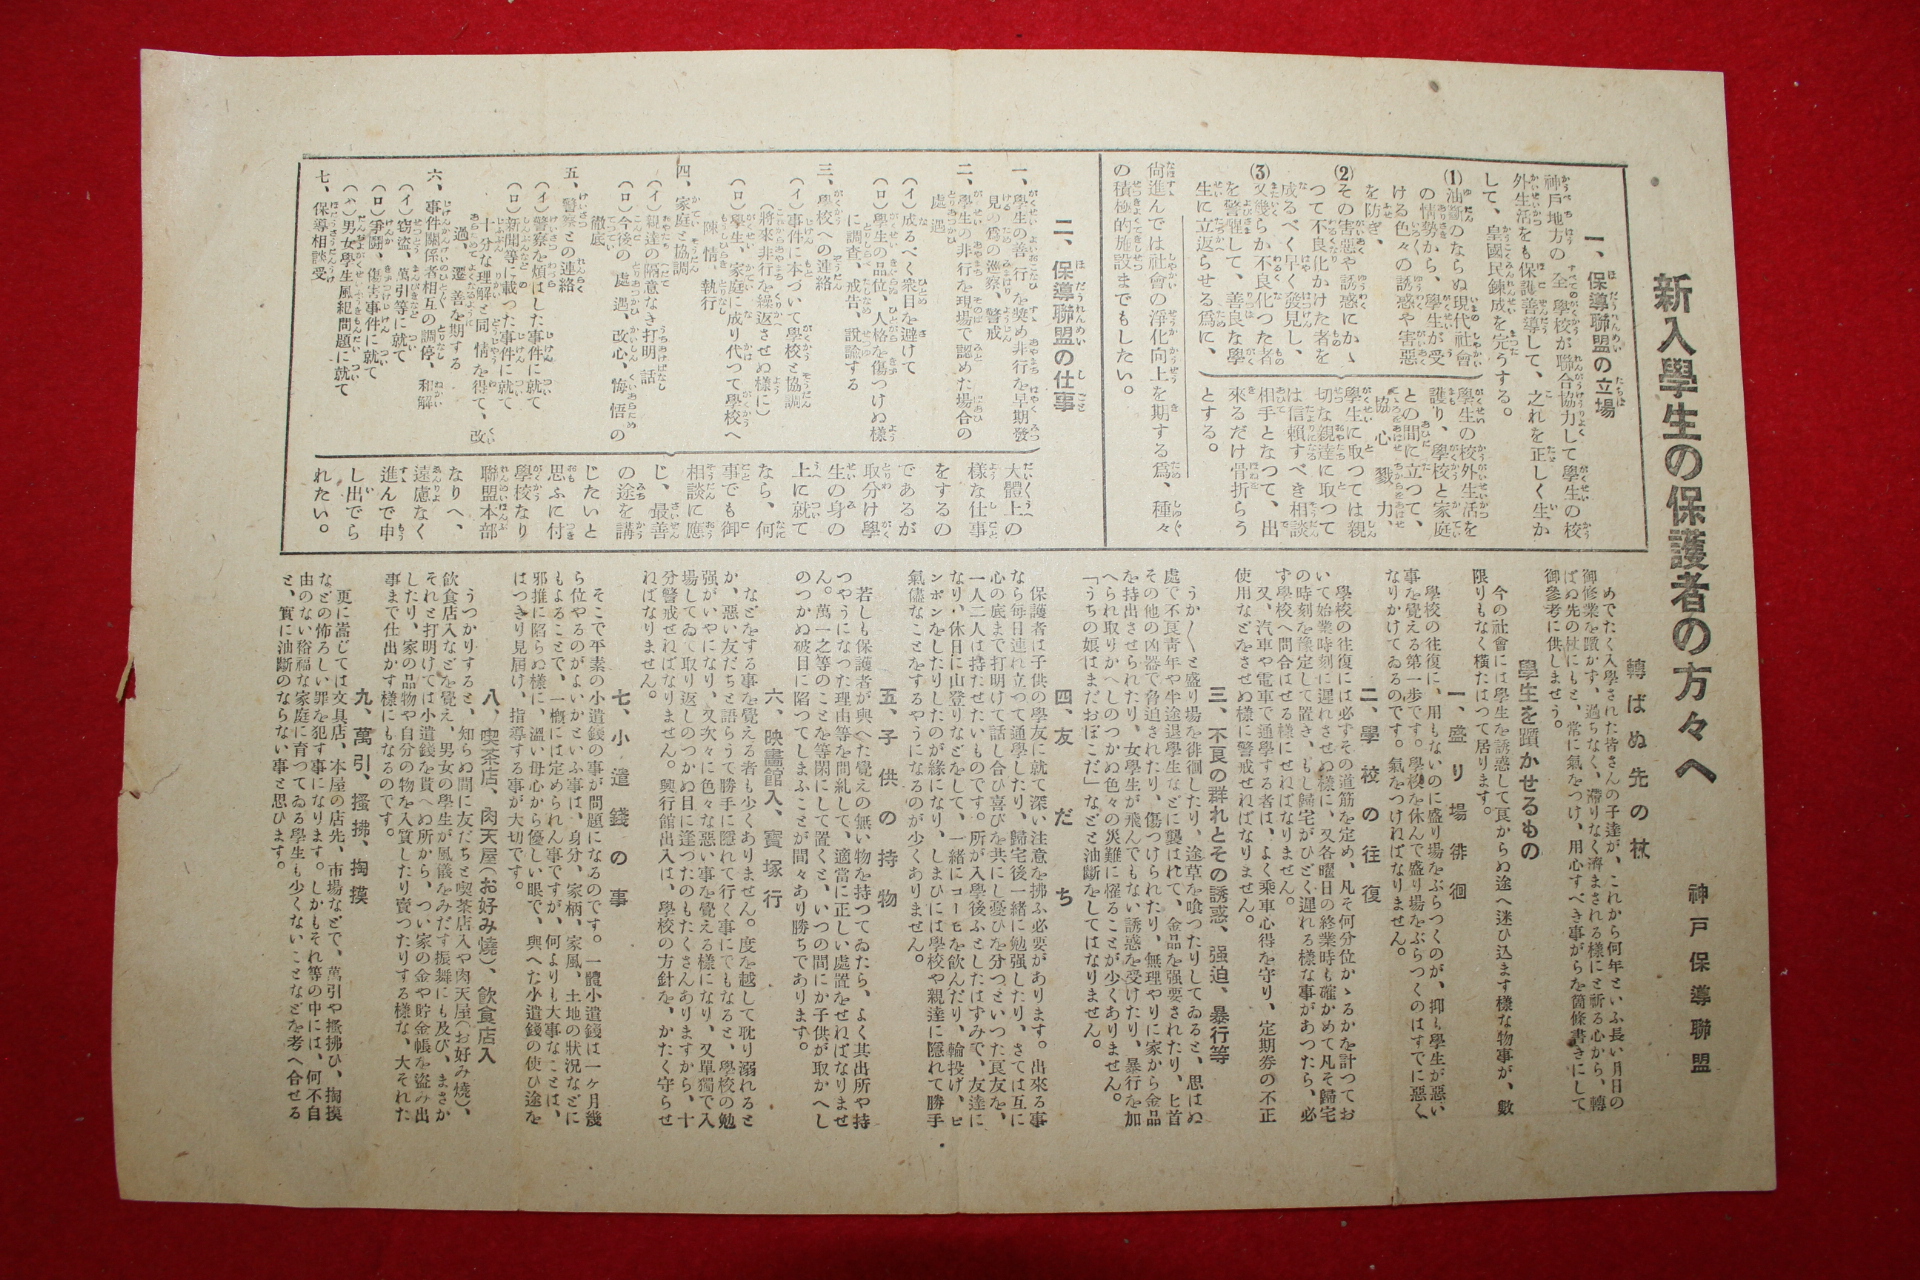 新入學生の保護者の方々へ
神戸保導聯盟
一、保導聯盟の立場
神戸地方の全學校が聯合協力して學生の校
外生活をも保護善導して、之れを正しく生か
して、皇國民錬成を完うする。
(1)油斷のならぬ現代社會
の情勢から、學生が受
ける色々の誘惑や害惡
を防ぎ、
(2)その害惡や誘惑にかゝ
つて不良化かけた者を
成るべく早く發見し、
(3)又幾らか不良化つた者
を警醒して、善良な學
生に立返らせる爲に、
學生の校外生活を
護り、學校と家庭
との間に立つて、
協心戮力、
學生に取つては親
切な親達に取つて
は信賴すべき相談
相手となつて、出
來るだけ骨折らう
とする。
尙進んでは社會の淨化向上を期する爲、種々
の積極的施設までもしたい。
二、保導聯盟の仕事
一、學生の善行を奬め非行を早期發
見の爲の漁察、警戒
二、學生の非行を現場で認めた場合の
處遇
(イ)成るべく衆目を避けて
(ロ)學生の品位、人格を傷つけぬ樣
に調査、戒告、說諭する
三、學校への連絡
(イ)事件に本づいて學校と協調
(將來非行を繰返させぬ樣に)
(ロ)學生、家庭に成り代つて學校へ
陳情、執行
四、家庭と協調
(イ)親達の隔意なき打明話
(ロ)今後の處遇、改心、悔悟の
徹底
五、警察との連絡
(イ)警察を煩はした事件に就て
(ロ)新聞等に載つた事件に就て
十分な理解と同情を得て、改
過、遷善を期する
六、事件關係者相互の調停、和解
(イ)窃盜、萬引等に就て
(ロ)爭鬪、傷害事件に就て
(ハ)男女學生風紀問題に就て
七、保導相談受
大體上の
樣な仕事
をするの
であるが
取分け學
生の身の
上に就て
なら、何
事でも御
相談に應
じ、最善
の途を講
じたいと
思ふに付
學校なり
聯盟本部
なりへ、
遠慮なく
進んで申
し出でら
れたい。
轉ばぬ先の杖
めでたく入學された皆さんの子達が、これから何年といふ長い月日の
御修業を躓かず、過らなく、滯りなく濟まされる樣にと祈る心から、轉
ばぬ先の杖にもと、常に氣をつけ、用心すべき事がらを箇條書きにして
御參考に供しませう。
學生を躓かせるもの
今の社會には學生を誘惑して良からぬ途へ迷ひ込ます樣な物事が、數
限りもなく橫たはつて居ります。
一、盛り場徘徊
學校の往復に、用もないのに盛り場をぶらつくのが、抑も學生が惡い
事を覺える第一歩です。學校を休んで盛り場をぶらつくのはすでに惡く
なりかけてゐるのです。氣をつけねばなりません。
二、學校の往復
學校の往復には必ずその道筋を定め、凡そ何分位かゝるかを計つてお
いて始業時刻に遲れさせぬ樣に、又各曜日の終業時も確かめて凡そ歸宅
の時刻を豫定して置き、もし歸宅がひどく遲れる樣な事があつたら、必
ず學校へ問合はせる樣にせねばなりません。
又、汽車や電車で通學する者は、よく乘車心得を守り、定期券の不正
使用などをさせぬ樣に警戒せねばなりません。
三、不良の群れとその誘惑、强迫、暴行等
うか〱と盛り場を徘徊したり、途草を喰つたりしてゐると、思はぬ
處で不良靑年や半途退學生などに襲はれて、金品を强要されたり、匕首
その他の凶器で脅迫されたり、傷つけられたり、無理やりに家から金品
を持出させられたり、女學生が飛んでもない誘惑を受けたり、暴行を加
へられ取りかへしのつかぬ色々の災難に懼ることが少くありません。
「うちの娘はまだおぼこだ」などと油斷をしてはなりません。
四、友だち
保護者は子供の學友に就て深い注意を拂ふ必要があります。出來る事
なら毎日連れ立つて通學したり、歸宅後一緒に勉强したり、さては互に
心の底まで打明けて話し合ひ喜びを共にし憂ひを分つといつた良友を、
一人二人は持たせたいものです。所が入學後ふとしたはずみで、友達に
なり、休日に山登りなどをして、一緒にコーヒを飮んだり、輪投げ、ピ
ンポンをしたりしたのが緣になり、しまひには學校や親達に隱れて勝手
氣儘なことをするやうになるのが少くありません。
五、子供の持物
若しも保護者が與へた覺えの無い物を持つてゐたら、よく其出所や持
つやうになつた理由等を問糺して、適當に正しい處置をせねばなりませ
ん。萬一之等のことを等閑にして置くと、いつの間にか子供が取かへし
のつかぬ破目に陷つてしまふことが間々あり勝ちであります。
六、映畫館入、寶塚行
などをする事を覺える者も少くありません。度を越して耽り溺れると
か、惡い友だちと語らうて勝手に隱れて行く事にでもなると、學校の勉
强がいやになり、又次々に色々な惡い事を覺える樣になり、又單獨で入
場してゐて取り返しのつかぬ目に逢つたのもたくさんありますから、十
分警戒せねばなりません。興行館出入は、學校の方針を、かたく守らせ
ねばなりません。
七、小遣錢の事
そこで平素の小遣錢の事が問題になるのです。一體小遣錢は一ヶ月幾
ら位やるのがよいかといふ事は、身分、家柄、家風、土地の狀況などに
もよることで、一槪には定められん事ですが、何よりも大事なことは、
邪推に陷らぬ樣に、溫い母心から優しい眼で、與へた小遣錢の使ひ途を
はつきり見屆け、指導する事が大切です。
八、喫茶店、肉天屋(お好み燒)、飮食店入
うつかりすると、知らぬ間に友だちと喫茶店入や肉天屋(お好み燒)、
飮食店入などを覺え、男女の學生が風儀をみだす振舞にも及び、まさか
それと打明けては小遣錢を貰へぬ所から、つい家の金や貯金帳を盜み出
したり、家の品物や自分の物を入質したり賣つたりする樣な、大それた
事まで仕出かす樣にもなるのです。
九、萬引、搔拂、掏摸
更に嵩じては文具店、本屋の店先、市場などで、萬引や搔拂ひ、掏摸
などの怖ろしい罪を犯す事になります。しかもそれ等の中には、何不自
由のない裕福な家庭に育つてゐる學生も少くないことなどを考へ合せる
と、實に油斷のならない事と思ひます。